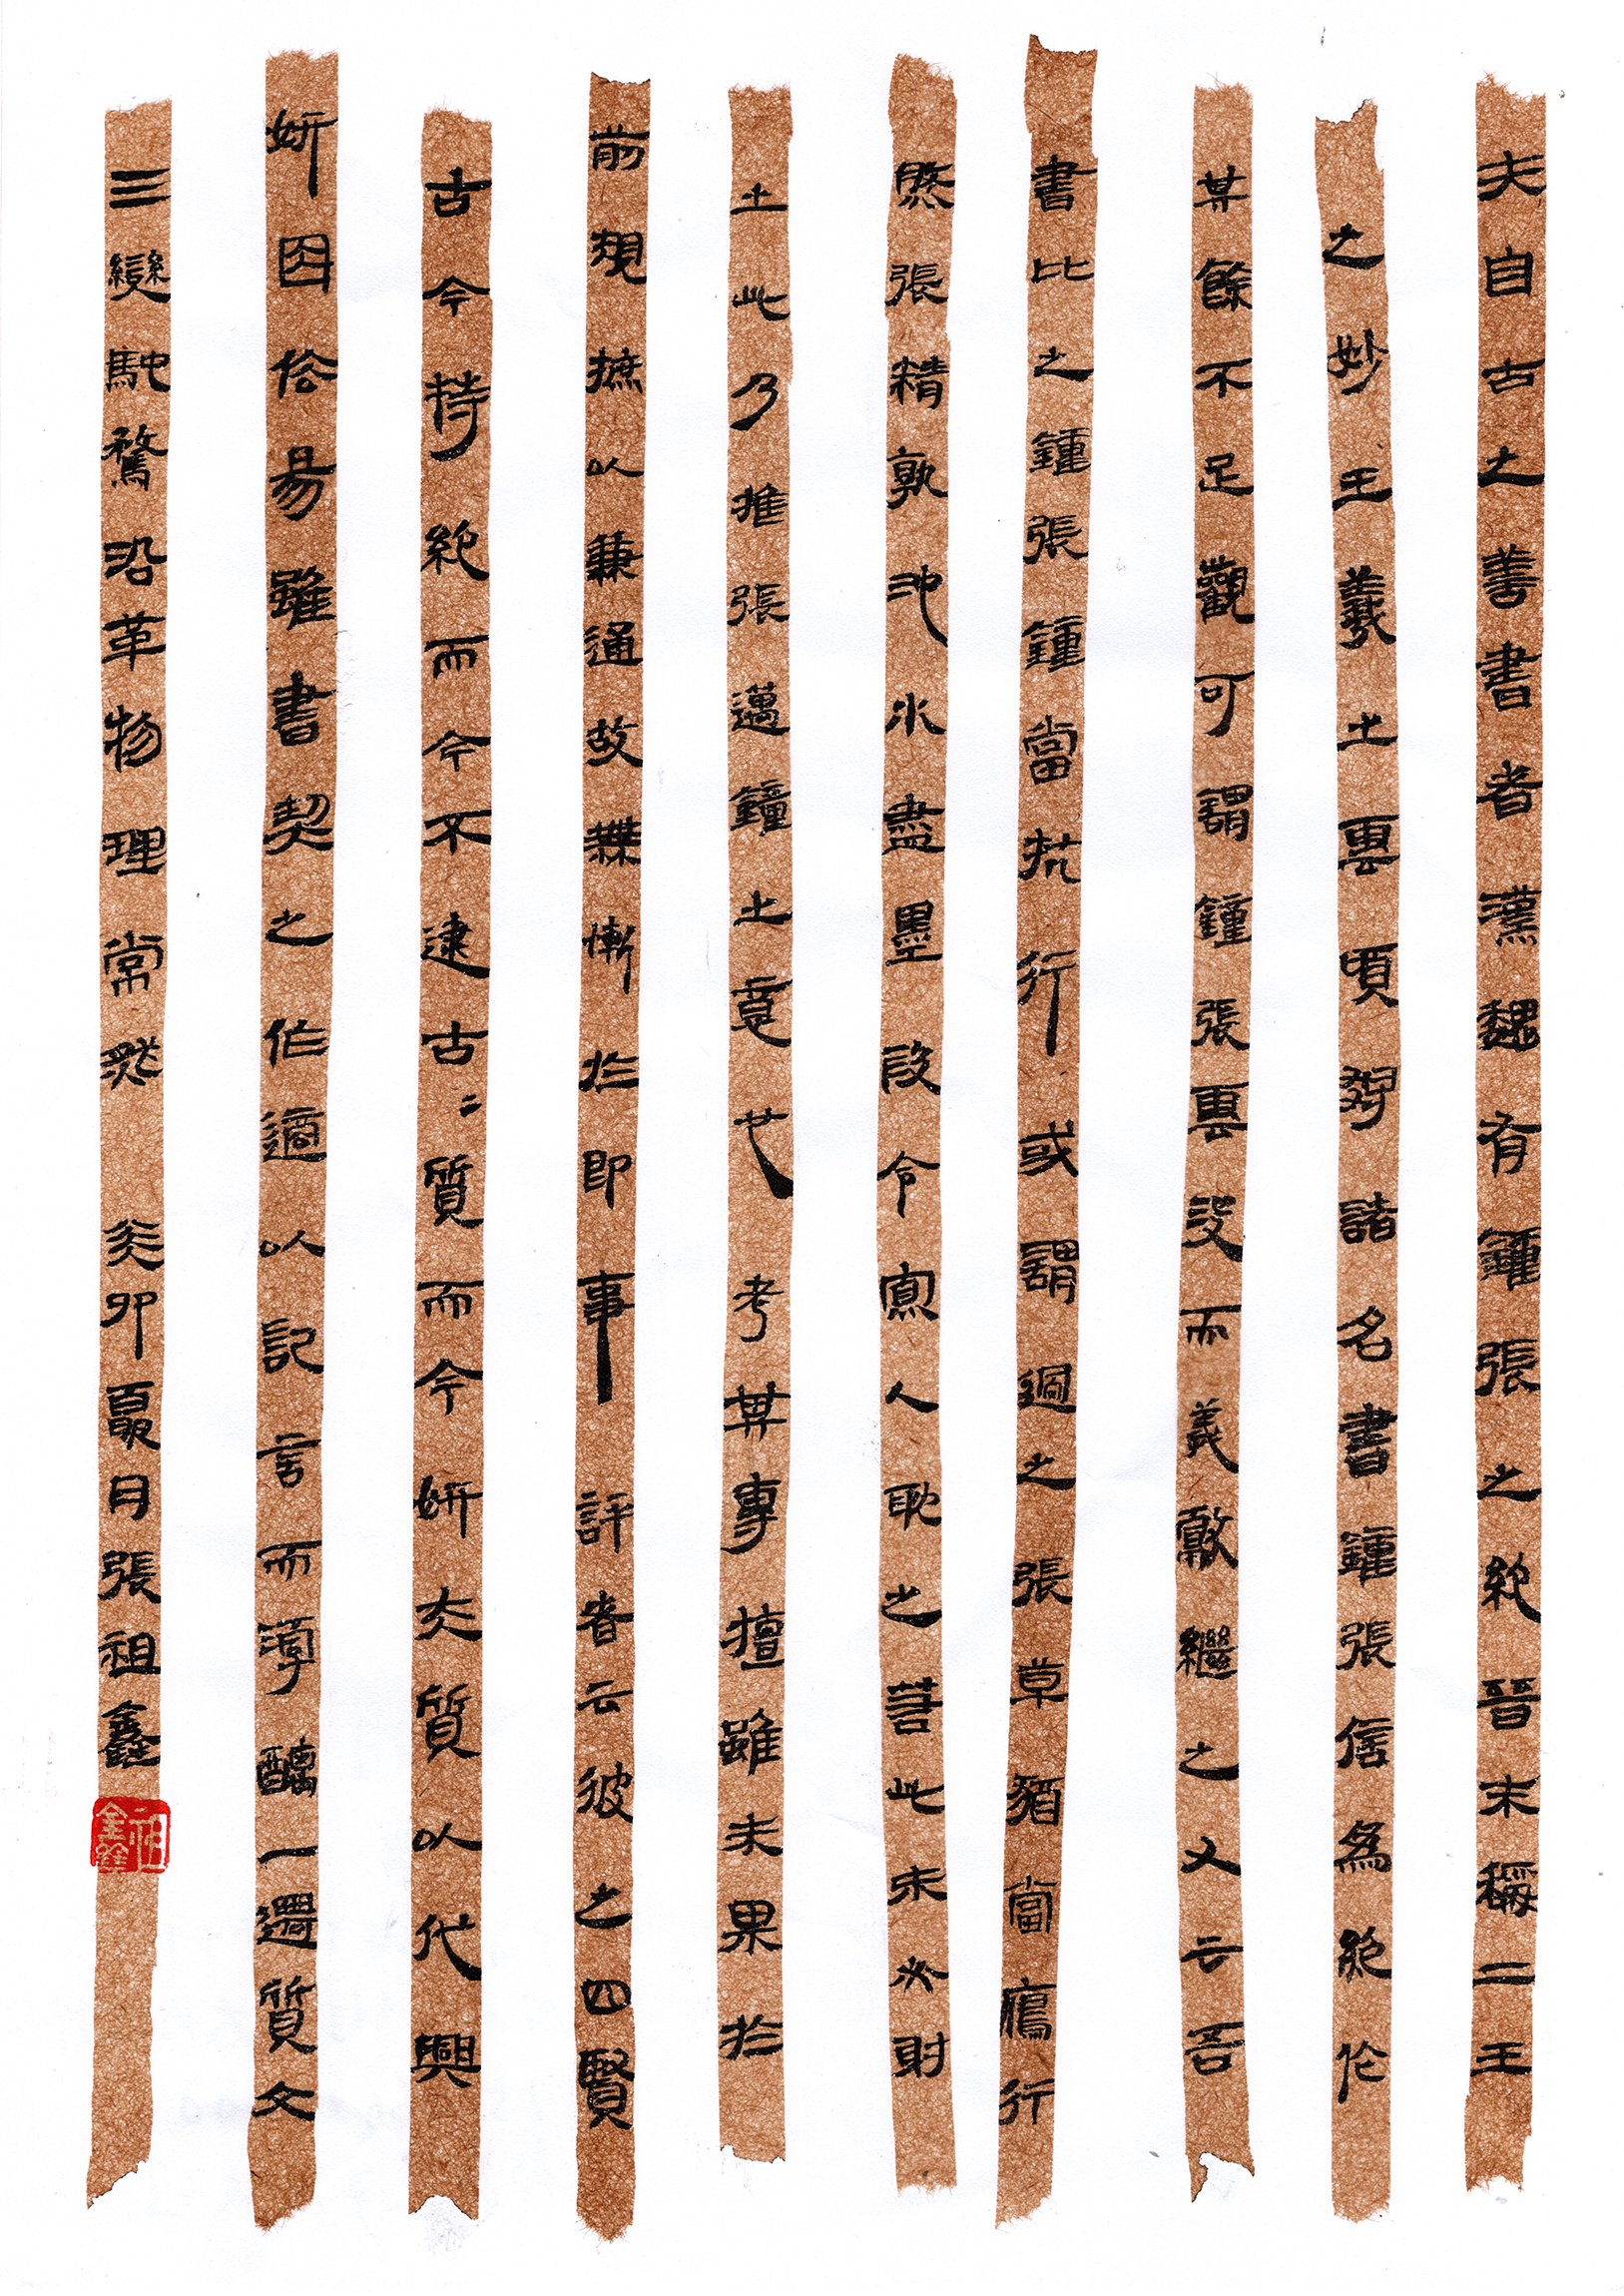 夫自古之善書者漢魏有鍾張之絕晉末稱二王
之妙王羲之雲頃尋諸名書鍾張信為絕倫
其餘不足觀可謂鍾張雲沒而羲獻繼之又云吾
書比之鍾張鍾當抗行或謂過之張草猶當鴈行
然張精熟池水盡墨叚令寡人耽之若此未必射
之此乃推張邁鍾之意也 考其專擅雖未果於
前規摭以兼通故無慚於即事 評者云彼之四賢
古今特絕而今不逮古〻質而今妍夫質以代興
妍因俗易雖書契之作適以記言而淳醨一遷質文
三變馳騖沿革物理常然 癸卯夏月張祖鑫
祖鑫